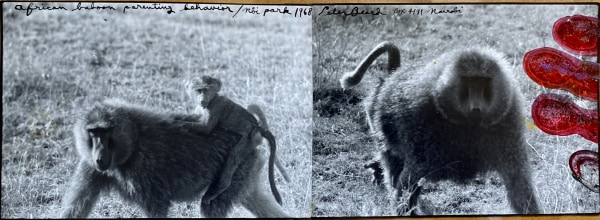 african baboon parenting behavior / nbi park 1968 Peter Beard Box 4191 - Nairobi